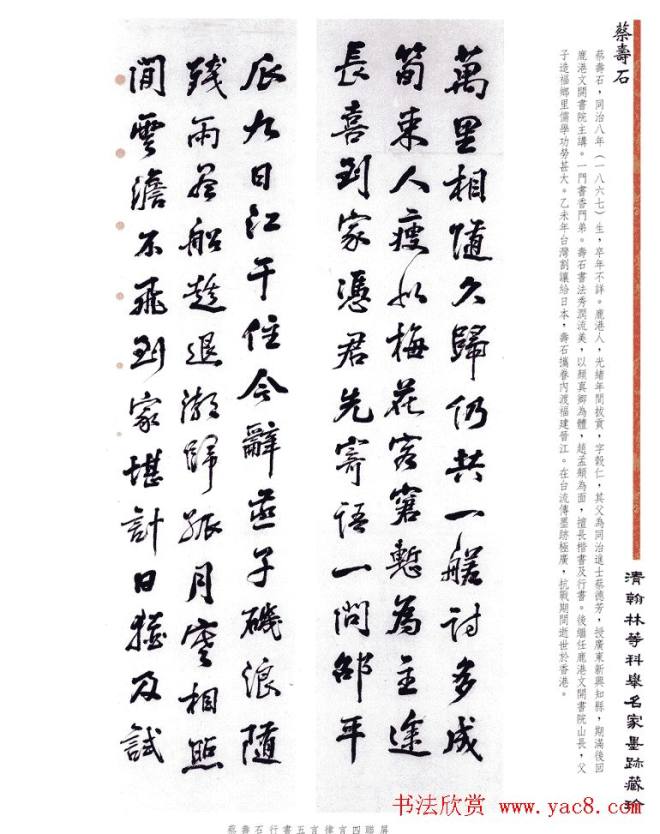 蔡壽石
蔡壽石，同治八年（一八六七）生，卒年不詳。鹿港人，光緒年間拔貢，字毅仁，其父為同治進士蔡德芳，授廣東新興知縣，期滿後回
鹿港文開書院主講。一門書香門弟。壽石書法秀潤流美，以顏真卿為體，趙孟頫為面，擅長楷書及行書。後繼任鹿港文開書院山長，父
子造福鄉里儒學功勞甚大。乙未年台灣割讓給日本，壽石攜眷內渡福建晉江。在台流傳墨跡極廣，抗戰期間逝世於香港。
清翰林等科舉名家墨跡藏珍
萬里相隨久歸仍共一艖討多成
筍束人瘦似梅花客窘暫為主途
長喜到家憑君先寄語一問邵平
辰九日江干住今辭燕子磯浪隨
殘雨船趁退潮歸孤月寒相照
閒雲澹不飛到家堪計日猶及試
蔡壽石行書五言律言四聯屏
书法欣赏 www.yac8.com